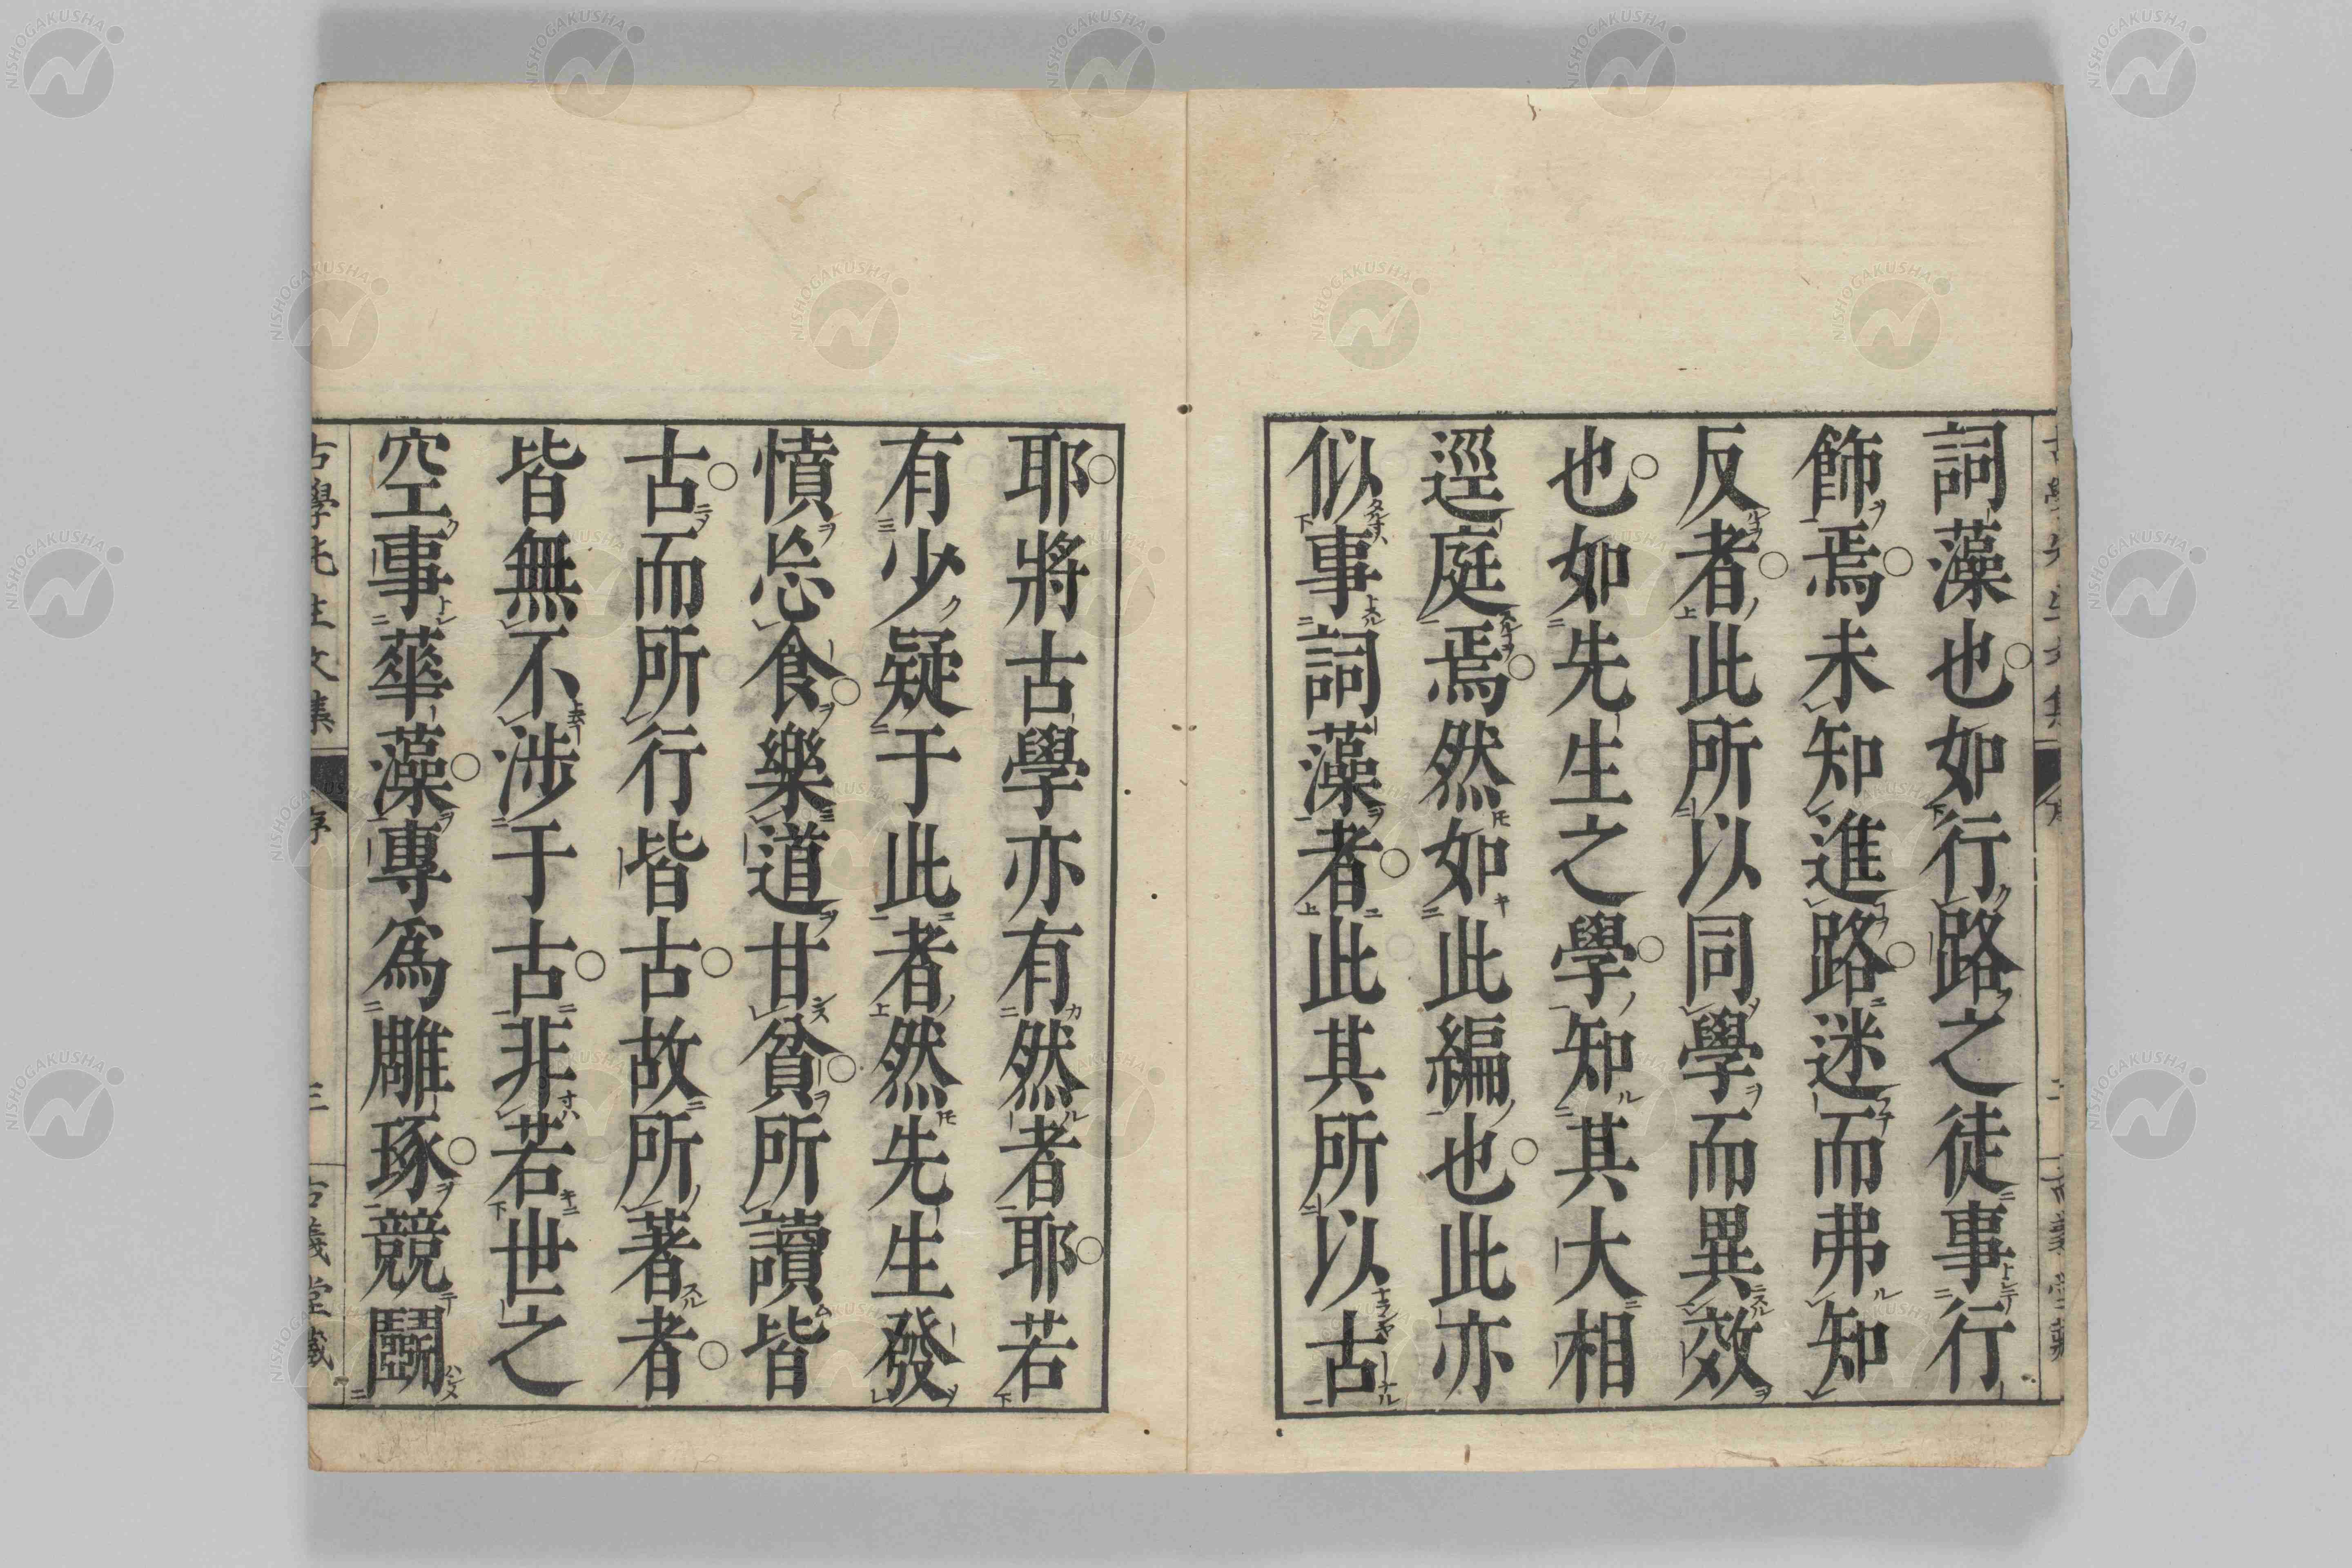 詞藻也。如行路之徒事行
飾焉。未知進路。迷而弗知
反者。此所以同學而異效
也。如先生之學。知其大相
逕庭焉。然如此編也。此亦
似事詞藻者。此其所以古
耶。將古學亦有然者耶。若
有少疑于此者。然先生發
憤忘食。樂道甘貧。所讀皆
古。而所行皆古。故所著者。
皆無不涉于古。非若世之
空事華藻。專爲雕琢。競鬪
古學先生文集
序
三
古義堂藏
NISHOGAKUSHA